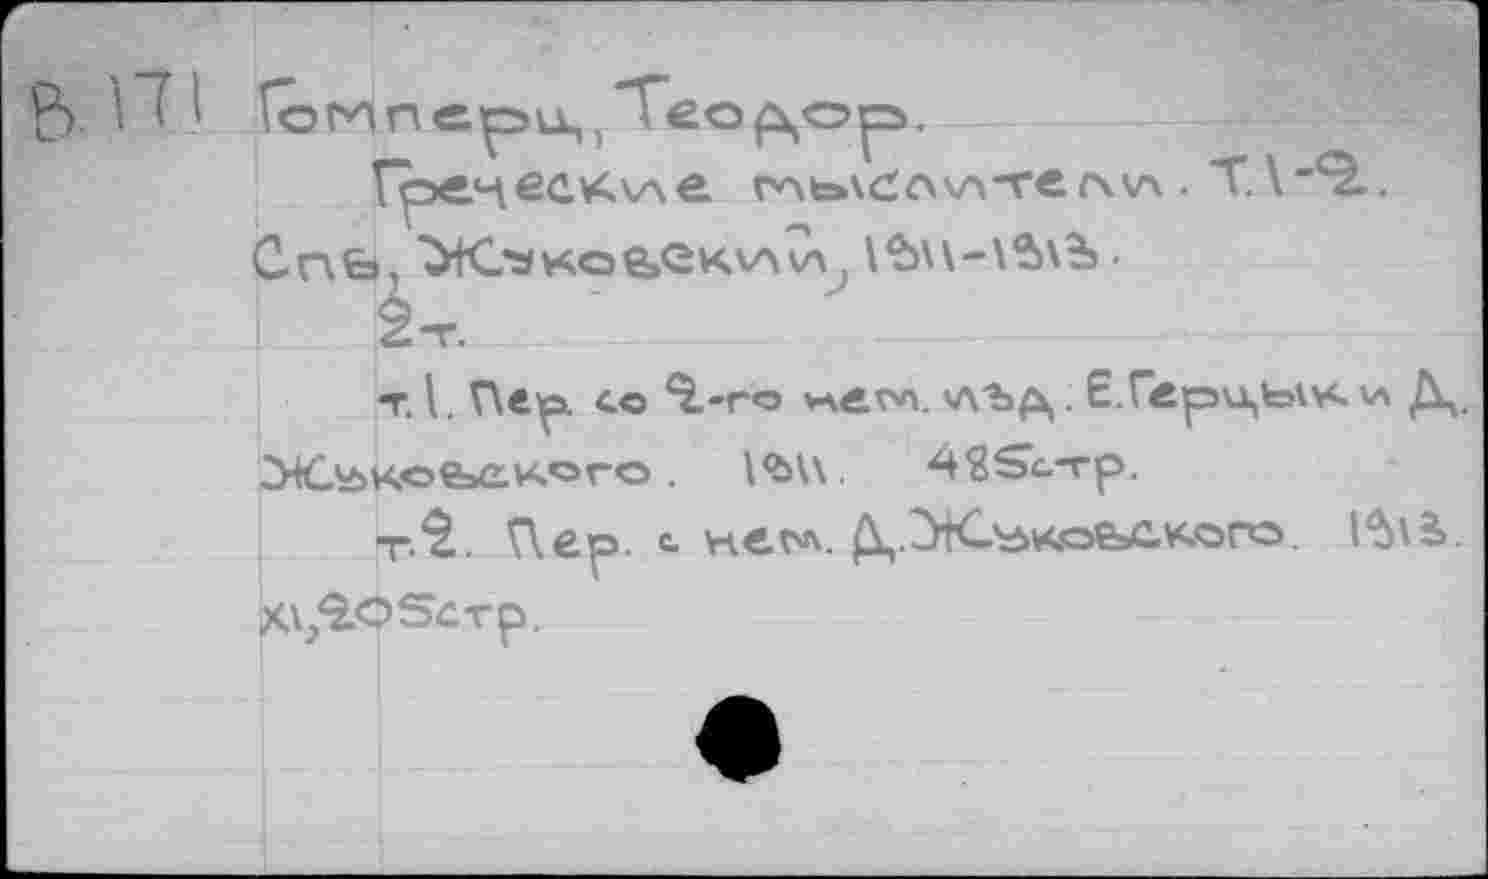 В.171 Гомперц, Теодор.
Греческие мыслители. Т.1-2.
Спб, Жуковский, 1911-1913.
2т.
т.1. Пер. со 2-го нем. изд. Е.Герцык и Д.
Жуковского. 1911. 485стр.
т.2. Пер. с нем. Д.Жуковского. 1913.
XI,205стр.